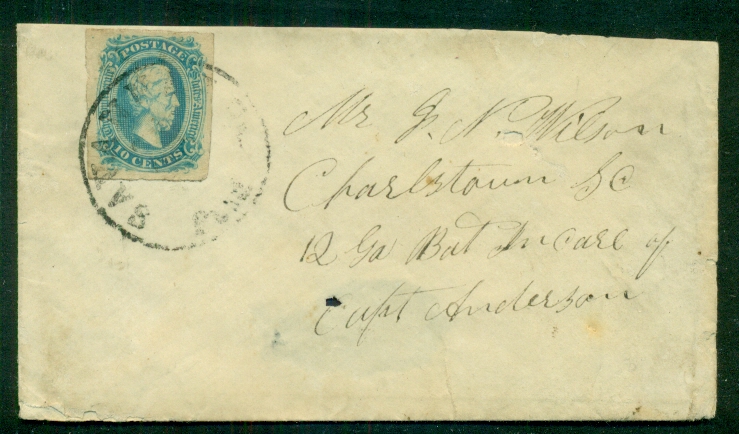 POSTAGE
10 CENTS
SAVANNAH
Mr J. N. Wilson
Charlstown SC
12 Ga Bat In care of
Capt Anderson